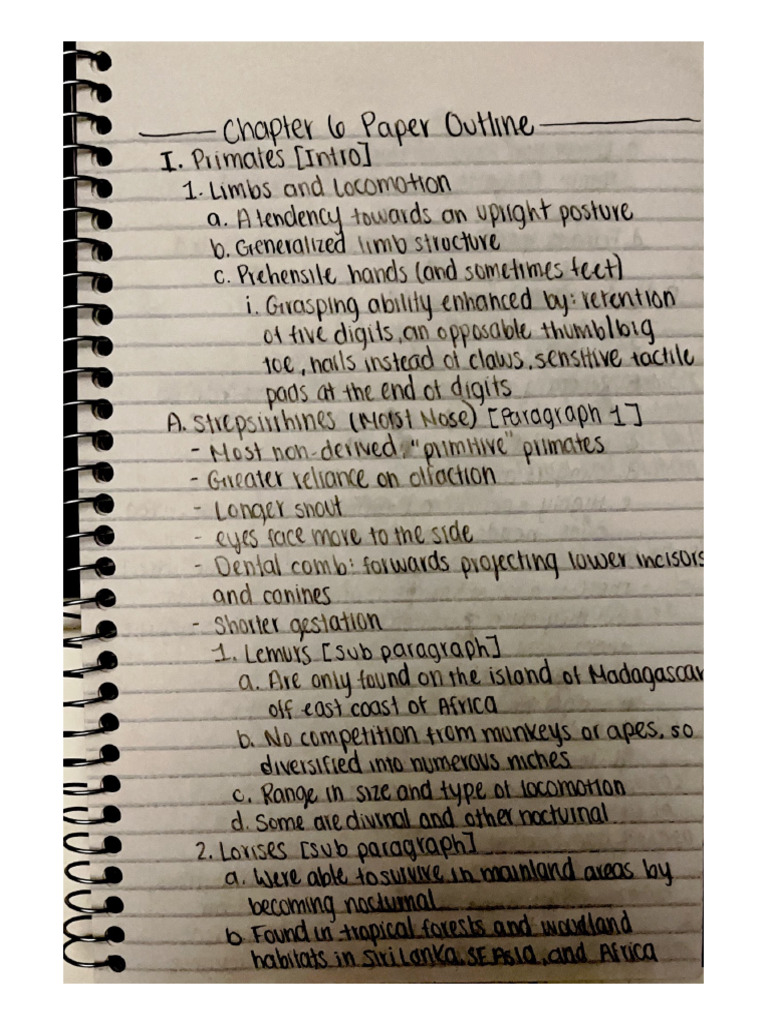 Chapter 6 Paper Outline
I. Primates [Intro]
1. Limbs and Locomotion
a. A tendency towards an upright posture
b. Generalized limb structure
c. Prehensile hands (and sometimes feet)
i. Grasping ability enhanced by: retention
of five digits, an opposable thumb/big
toe, nails instead of claws, sensitive tactile
pads at the end of digits
A. Strepsirrhines (Moist Nose) [Paragraph 1]
- Most non-derived, "primitive" primates
- Greater reliance on olfaction
- Longer snout
- eyes face more to the side
- Dental comb: forwards projecting lower incisors
and canines
- Shorter gestation
1. Lemurs [sub paragraph]
a. Are only found on the island of Madagascar
off east coast of Africa
b. No competition from munkeys or apes, so
diversified into numerous niches
c. Range in size and type of locomotion
d. Some are divinal and other nocturnal
2. Lorises [sub paragraph]
a. Were able to survive in mainland areas by
becoming nocturnal
b. Found in tropical forests and woodland
habitats in Siri Lanka, SE Asia, and Africa